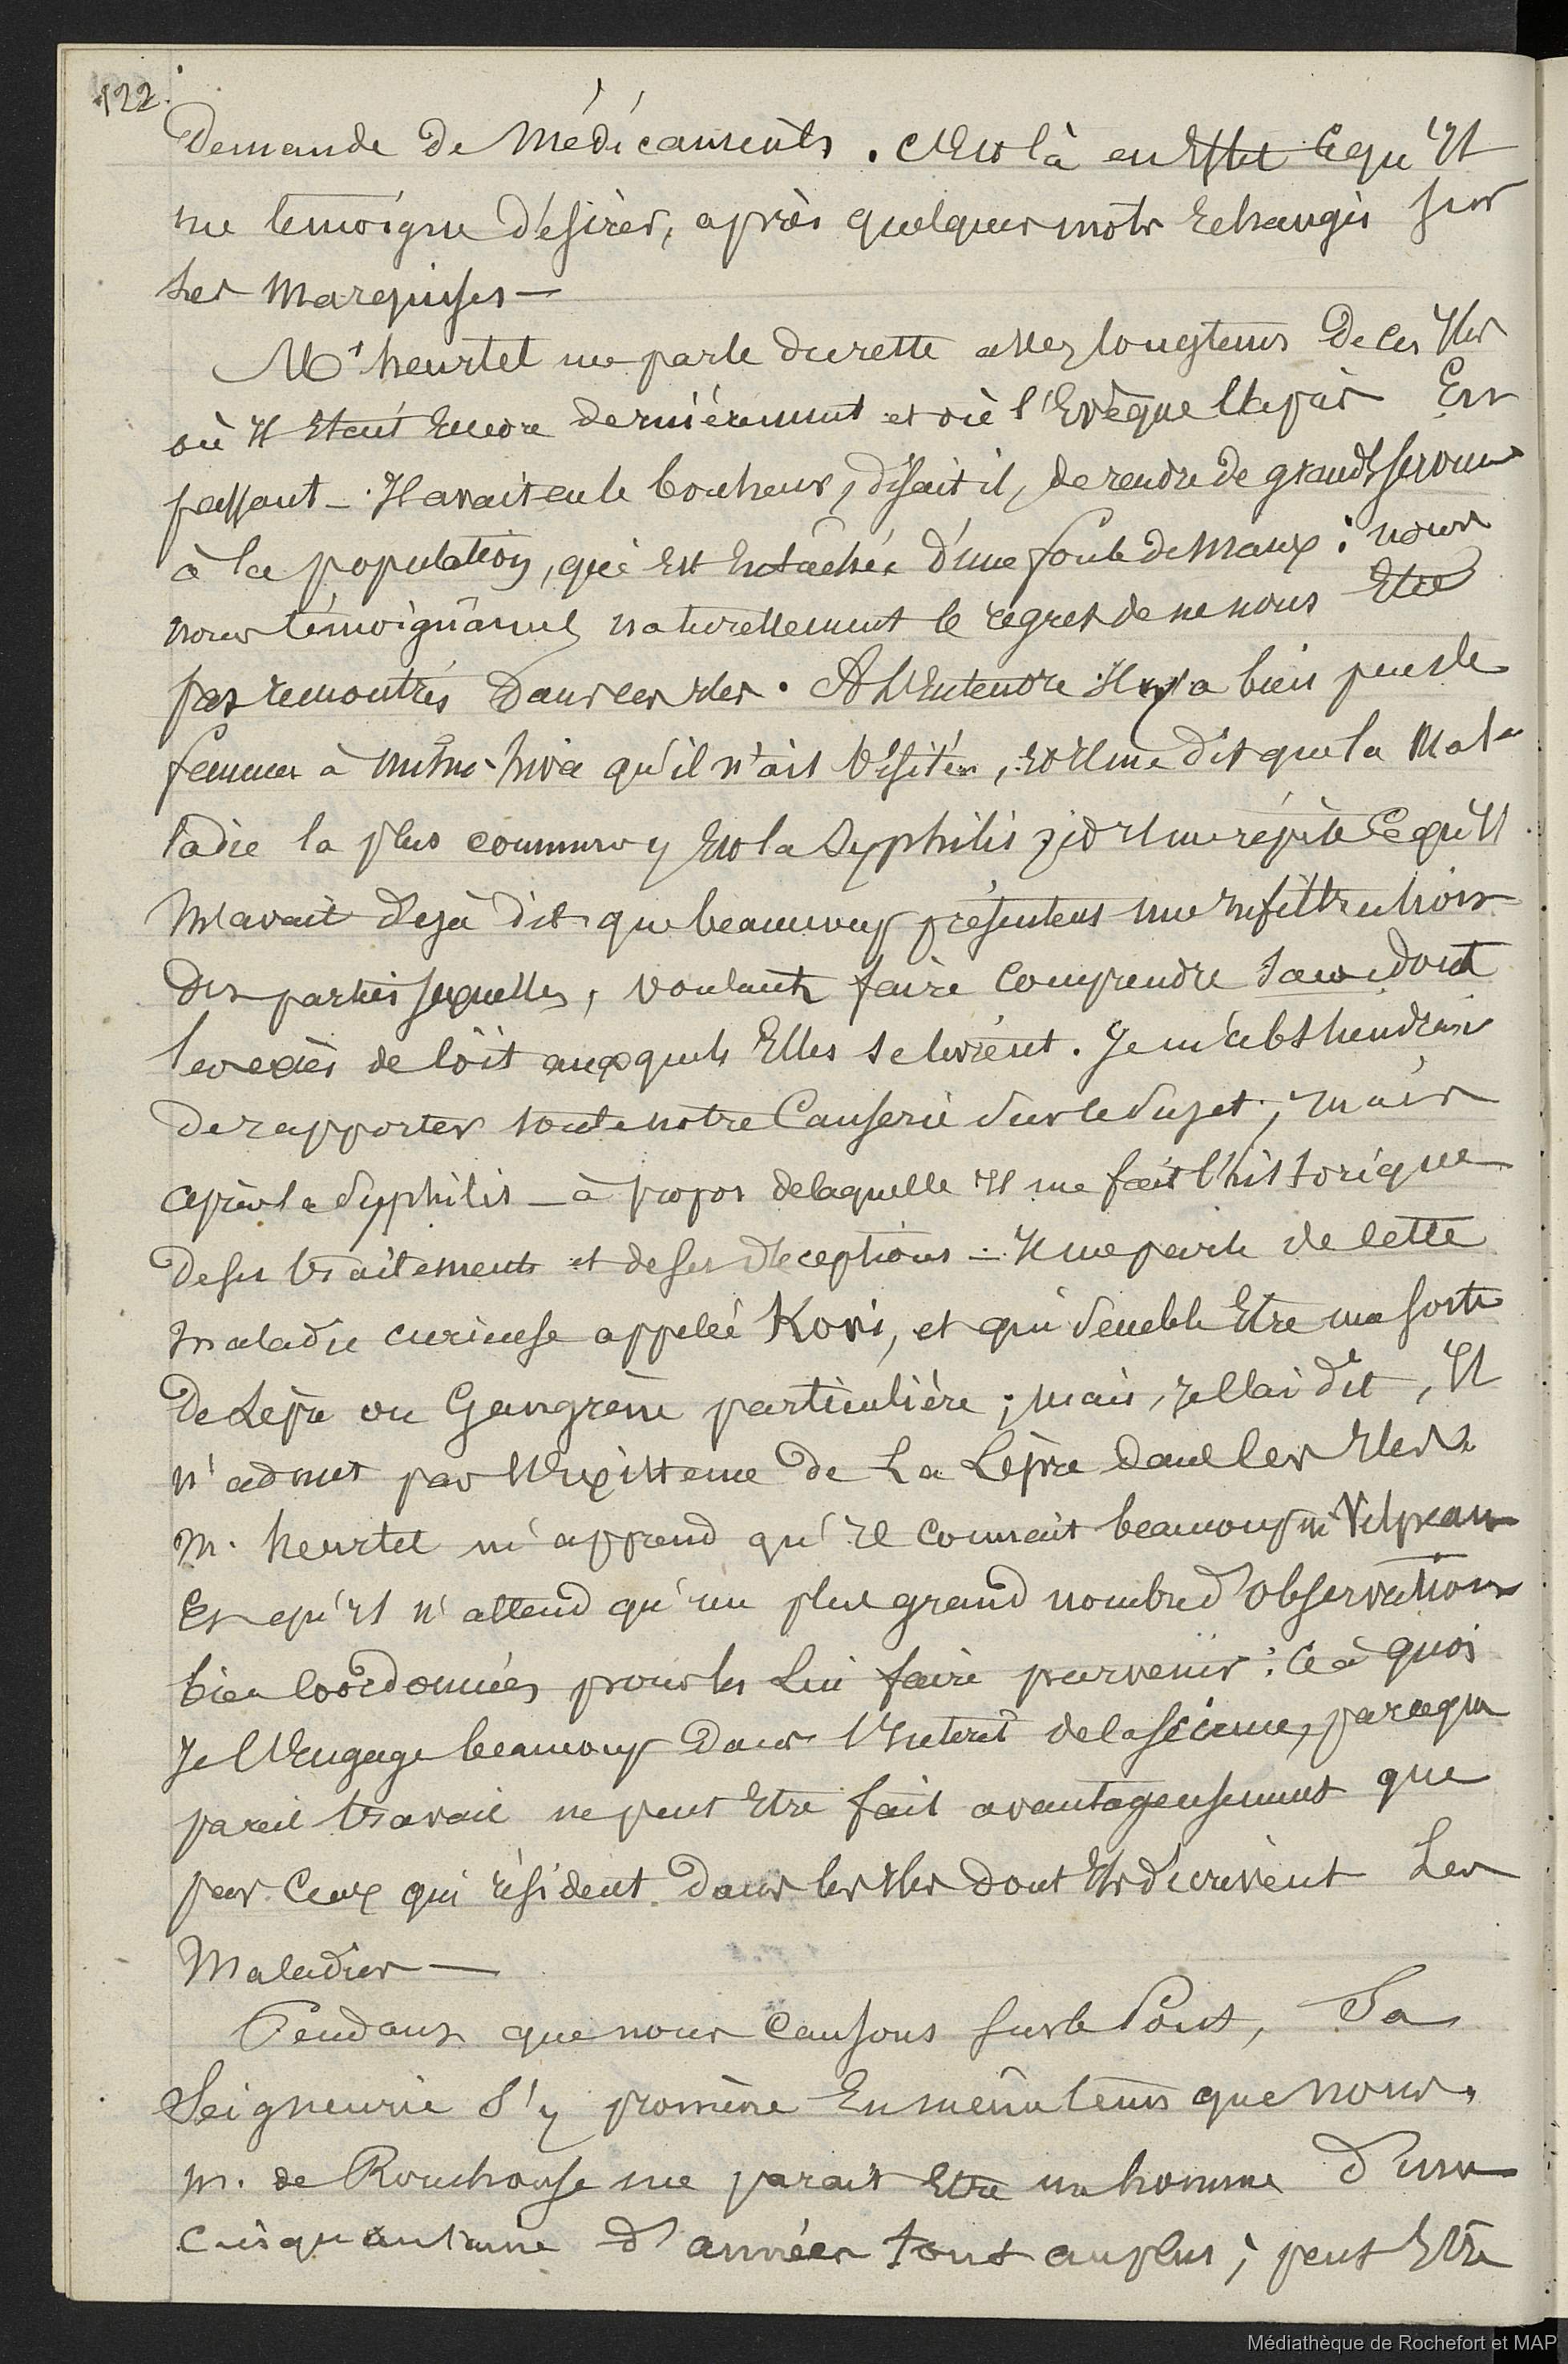 122.
demande de Médicaments. C'est là en Effet ce qu'Il
me témoigne désirer, après quelques mots Echangés sur
les Marquises —
Mr heurtel me parle du reste assez longtems de ces Iles
où Il Etait Encore dernièrement et où l'Evèque l'a pris En
passant — Il avait eu le bonheur, disait il, de rendre de grands services
à la population, qui Est Entachée d'une foule de Maux : nous
nous témoignâmes naturellement le regret de ne nous Etre
pas rencontrés dans ces Iles. A l'Entendre Il y a bien peu de
femmes à nuhu-hiva qu'il n'ait Visitées, Et Il me dit que la Mal-
ladie la plus commune y Est la Syphilis ; Et Il me répète ce qu'Il
M'avait déjà dit que beaucoup présentent une Infiltration
des parties sexuelles, voulant faire comprendre sans doute
les excès de coït auxquels Elles se livrent. Je m'abstiendrai
de rapporter toute notre Causerie sur le sujet ; mais
après la Syphilis — à propos de laquelle Il me fait l'historique
de ses traitements et de ses déceptions — Il me parle de cette
maladie curieuse appelée Kovi, et qui semble Etre une sorte
de Lèpre ou Gangrène particulière ; mais, je l'ai dit, Il
n'admet pas l'Existence de La Lèpre dans les Iles.
M. heurtel m'apprend qu'Il connait beaucoup M. Velpeau
Et qu'Il n'attend qu'un plus grand nombre d'observations
bien coordonnées pour les Lui faire parvenir : Ce à quoi
Je l'Engage beaucoup dans l'Interêt de la science, parceque
pareil travail ne peut Etre fait avantageusement que
par Ceux qui résident dans les Iles dont Ils décrivent Les
Maladies —
Pendant que nous Causons sur le Pont, Sa
Seigneurie s'y promène En même tems que nous.
M. de Rouchouse me parait Etre un homme d'une
cinquantaine d'années tout au plus ; peut Etre
Médiathèque de Rochefort et MAP